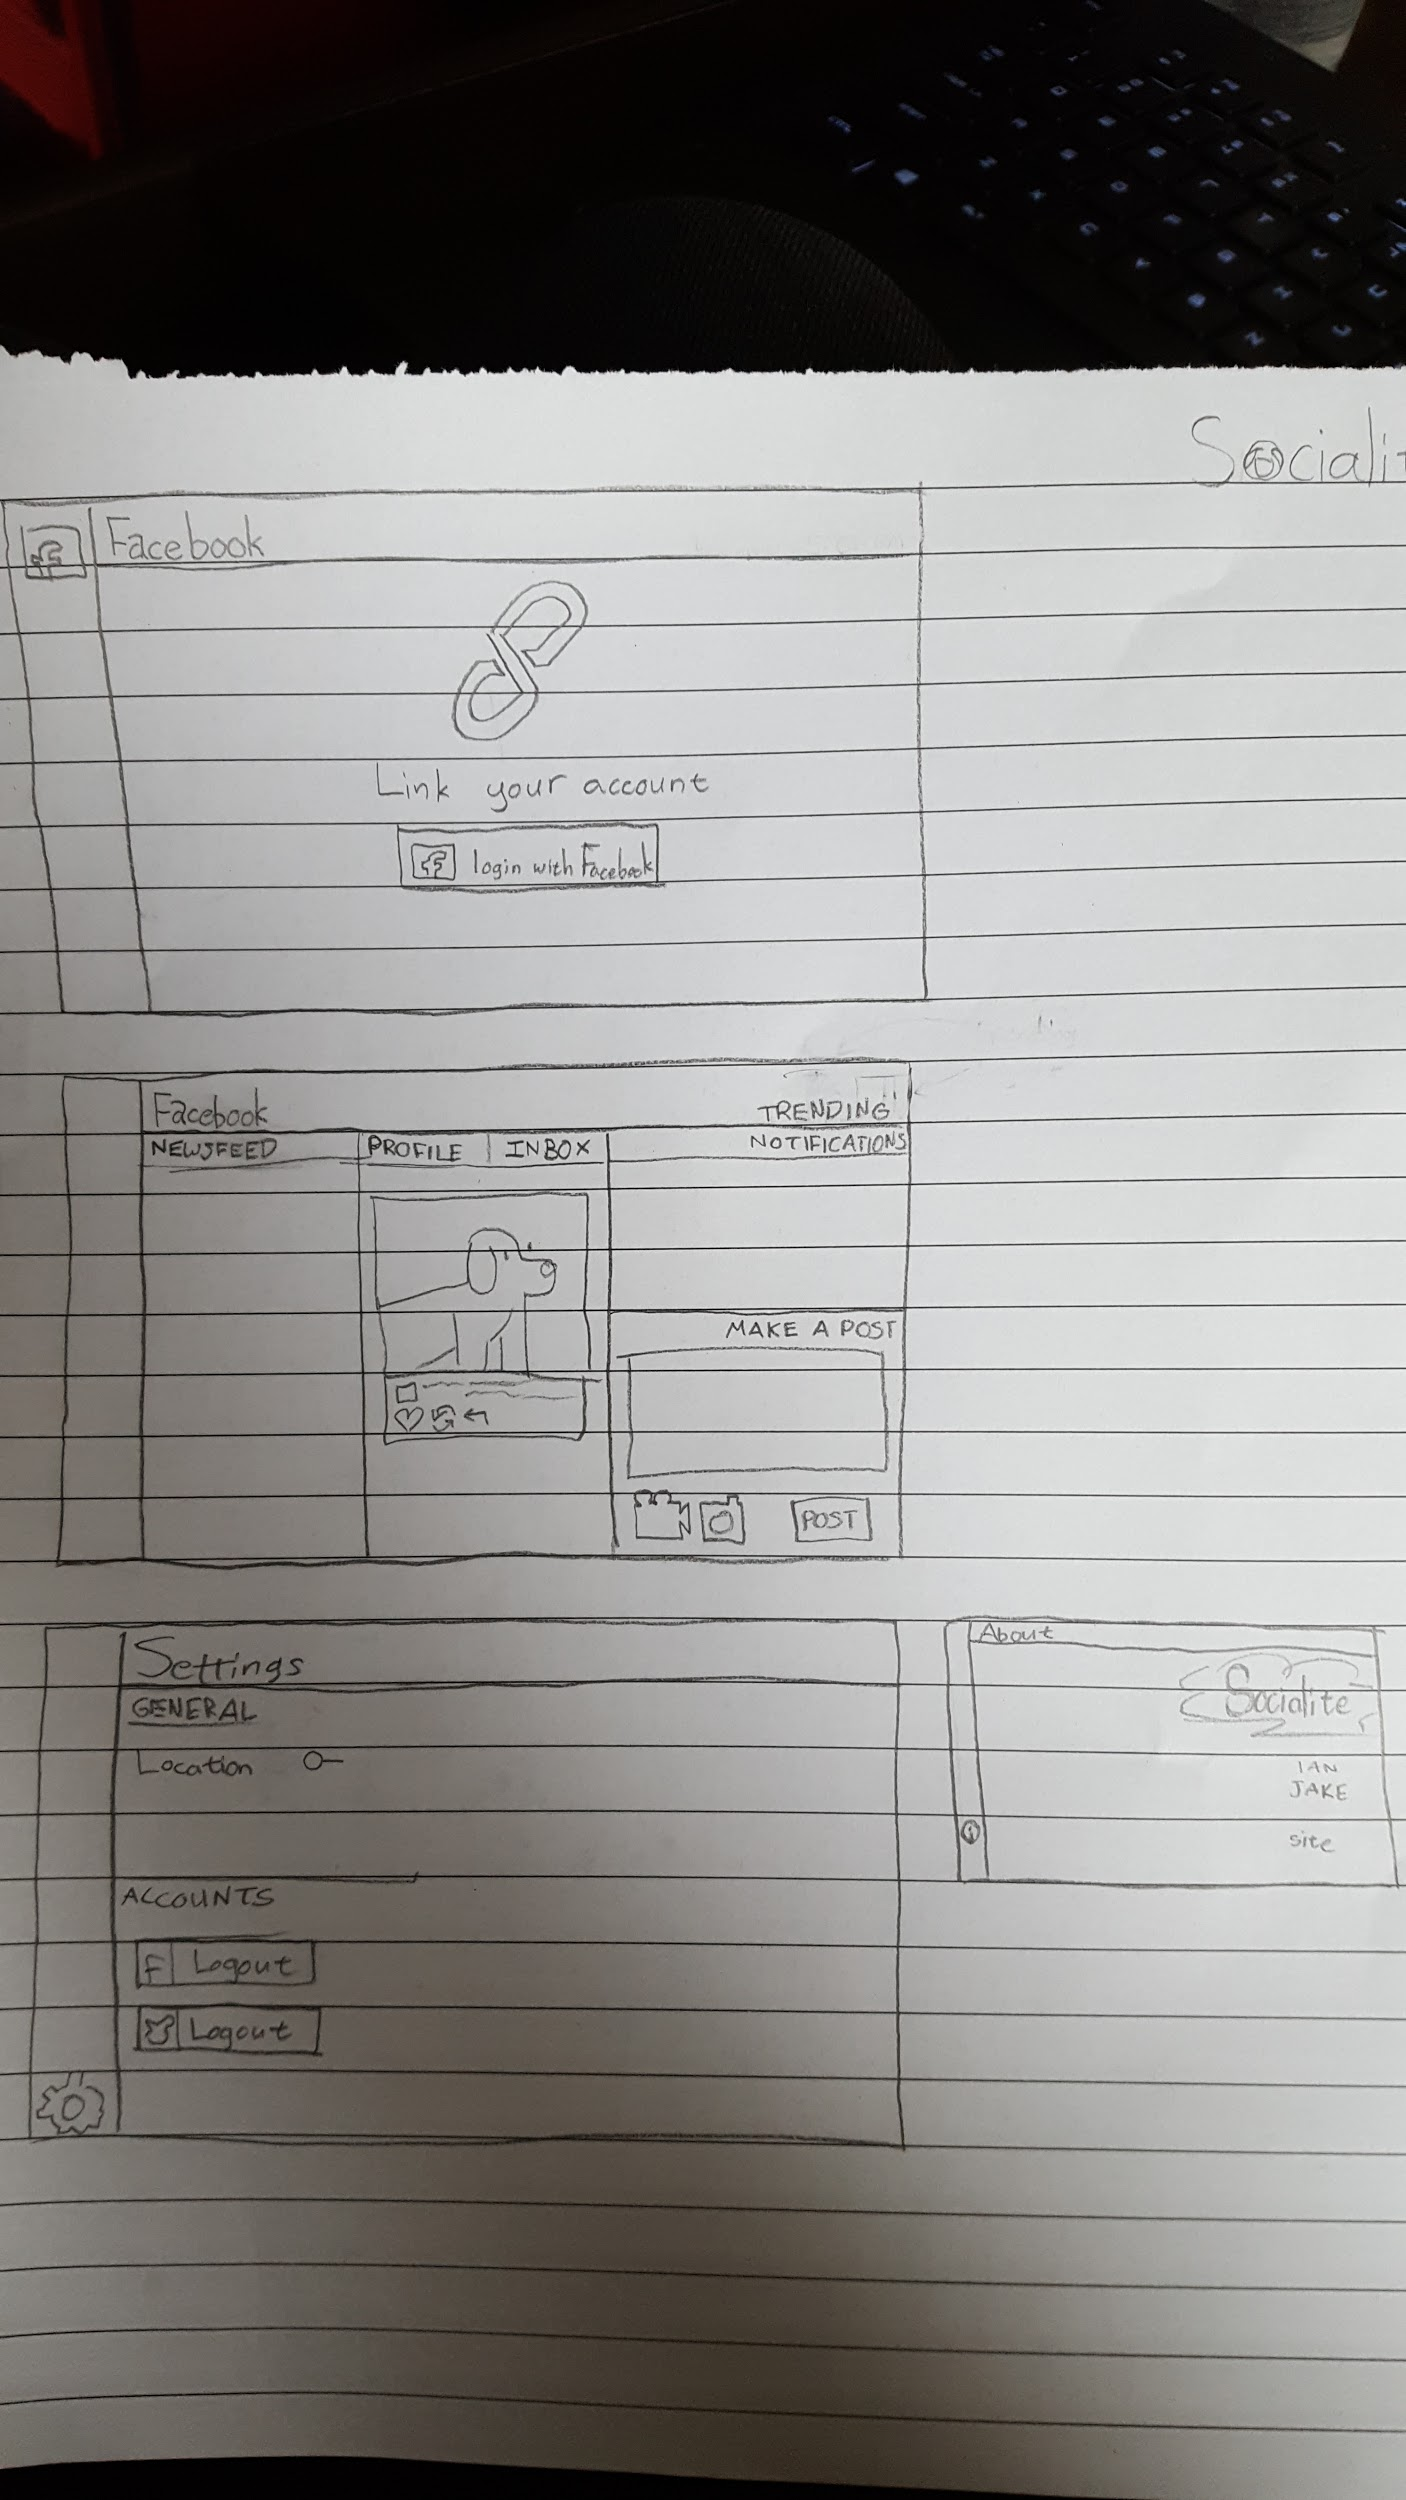 Sociali
Facebook
Link your account
f login with Facebook
Facebook
TRENDING
NEWSFEED PROFILE INBOX NOTIFICATIONS
MAKE A POST
POST
Settings
GENERAL
Location
ACCOUNTS
F Logout
Logout
About
Socialite
IAN
JAKE
i
site